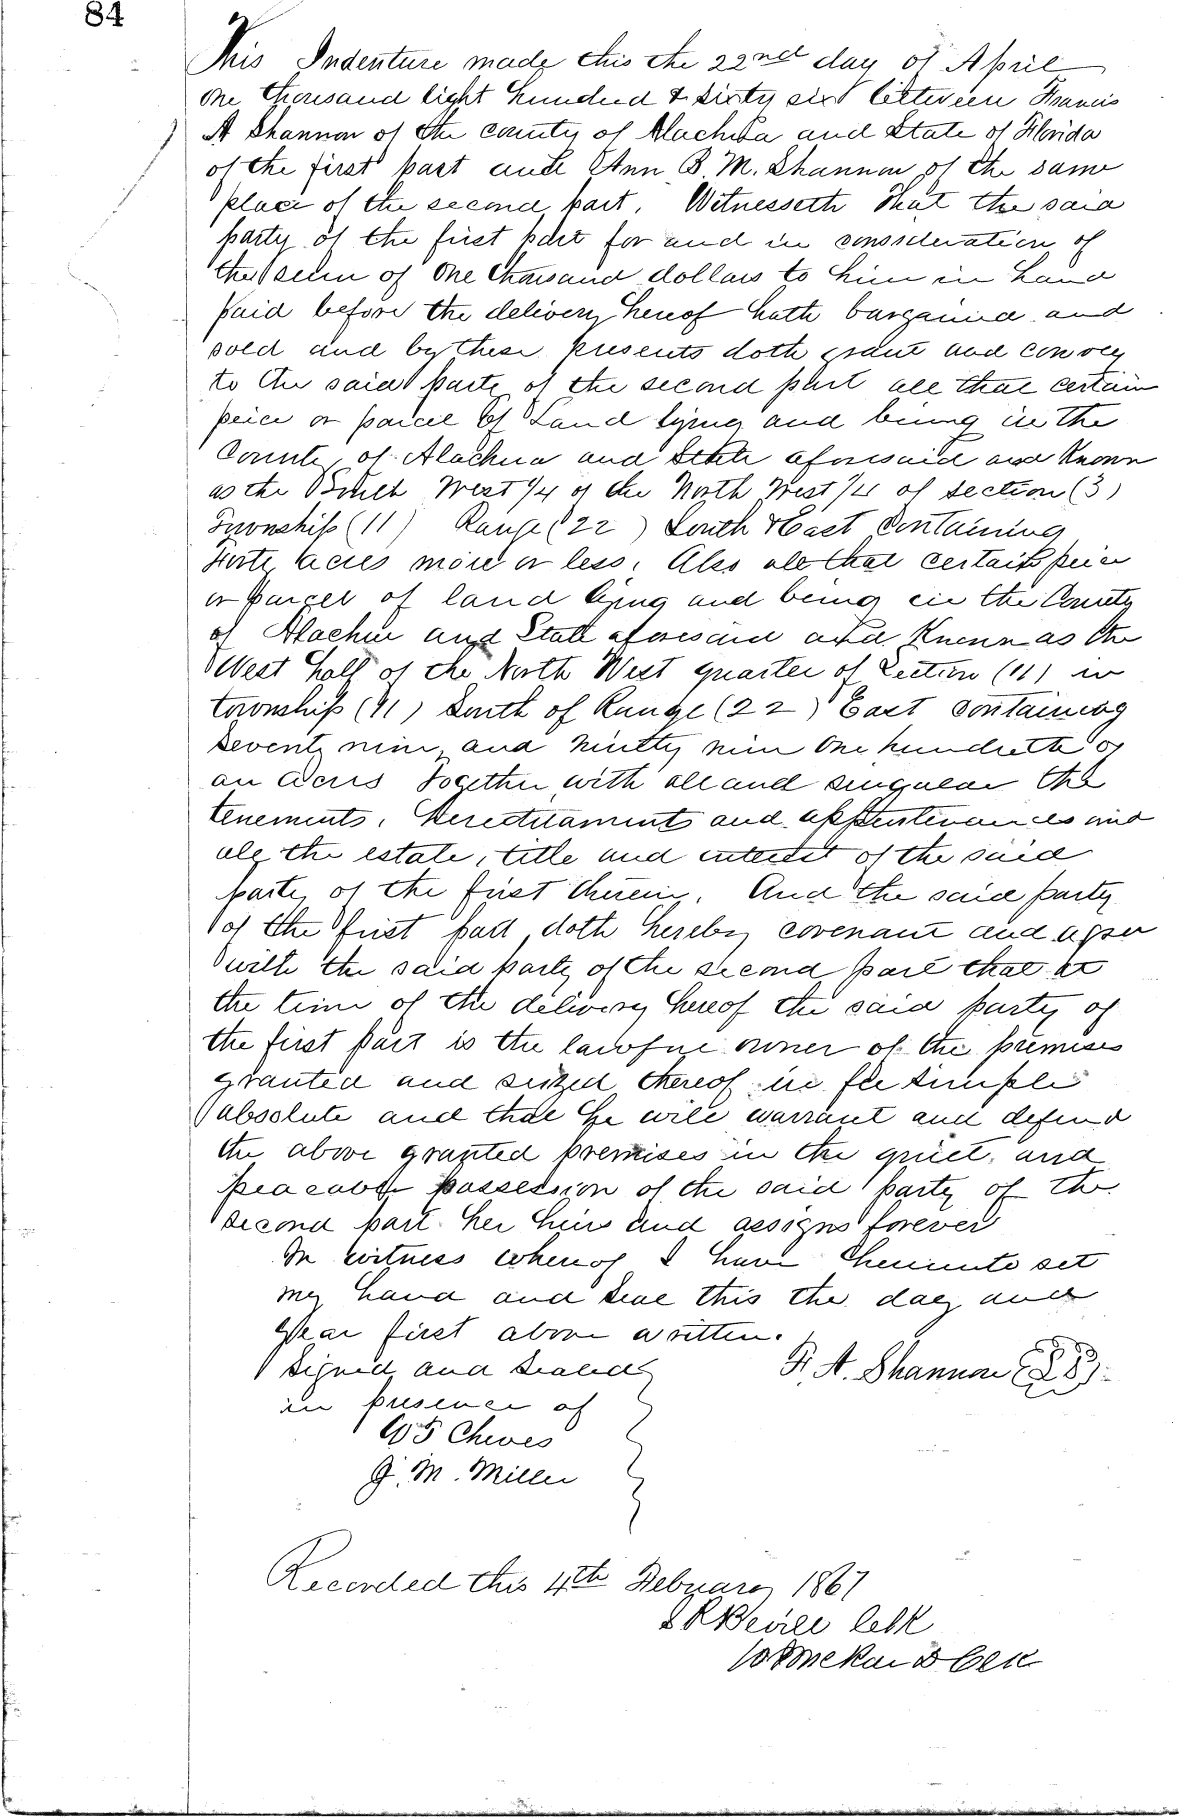 84
This Indenture made this the 22nd day of April
One thousand Eight hundred & Sixty six between Francis
A Shannon of the county of Alachua and State of Florida
of the first part and Ann B. M. Shannon of the same
place of the second part. Witnesseth That the said
party of the first part for and in consideration of
the sum of One thousand dollars to him in hand
paid before the delivery hereof hath bargained and
sold and by these presents doth grant and convey
to the said party of the second part all that certain
peice or parcel of Land lying and being in the
County of Alachua and State aforesaid and Known
as the South West 1/4 of the North West 1/4 of Section (3)
Township (11) Range (22) South & East Containing
Forty acres more or less. Also all that certain peice
or parcel of land lying and being in the County
of Alachua and State aforesaid and Known as the
West half of the North West quarter of Section (11) in
township (11) South of Range (22) East containing
Seventy nine and ninetty nine One hundreth of
an acres Together with all and singular the
tenements, Hereditaments and appurtenances and
all the estate, title and interest of the said
party of the first therein. And the said party
of the first part doth hereby covenant and agree
with the said party of the second part that at
the time of the delivery hereof the said party of
the first part is the lawful owner of the premises
granted and seized thereof in fee simple
absolute and that he will warrant and defend
the above granted premises in the quiet and
peacable possession of the said party of the
second part her heirs and assigns forever
In witness whereof I have hereunto set
my hand and seal this the day and
year first above written.
Signed and Sealed F. A. Shannon
in presence of
W F Cheves
J. M. Miller
Recorded this 4th February 1867
S R Bevill Clk
D Clk